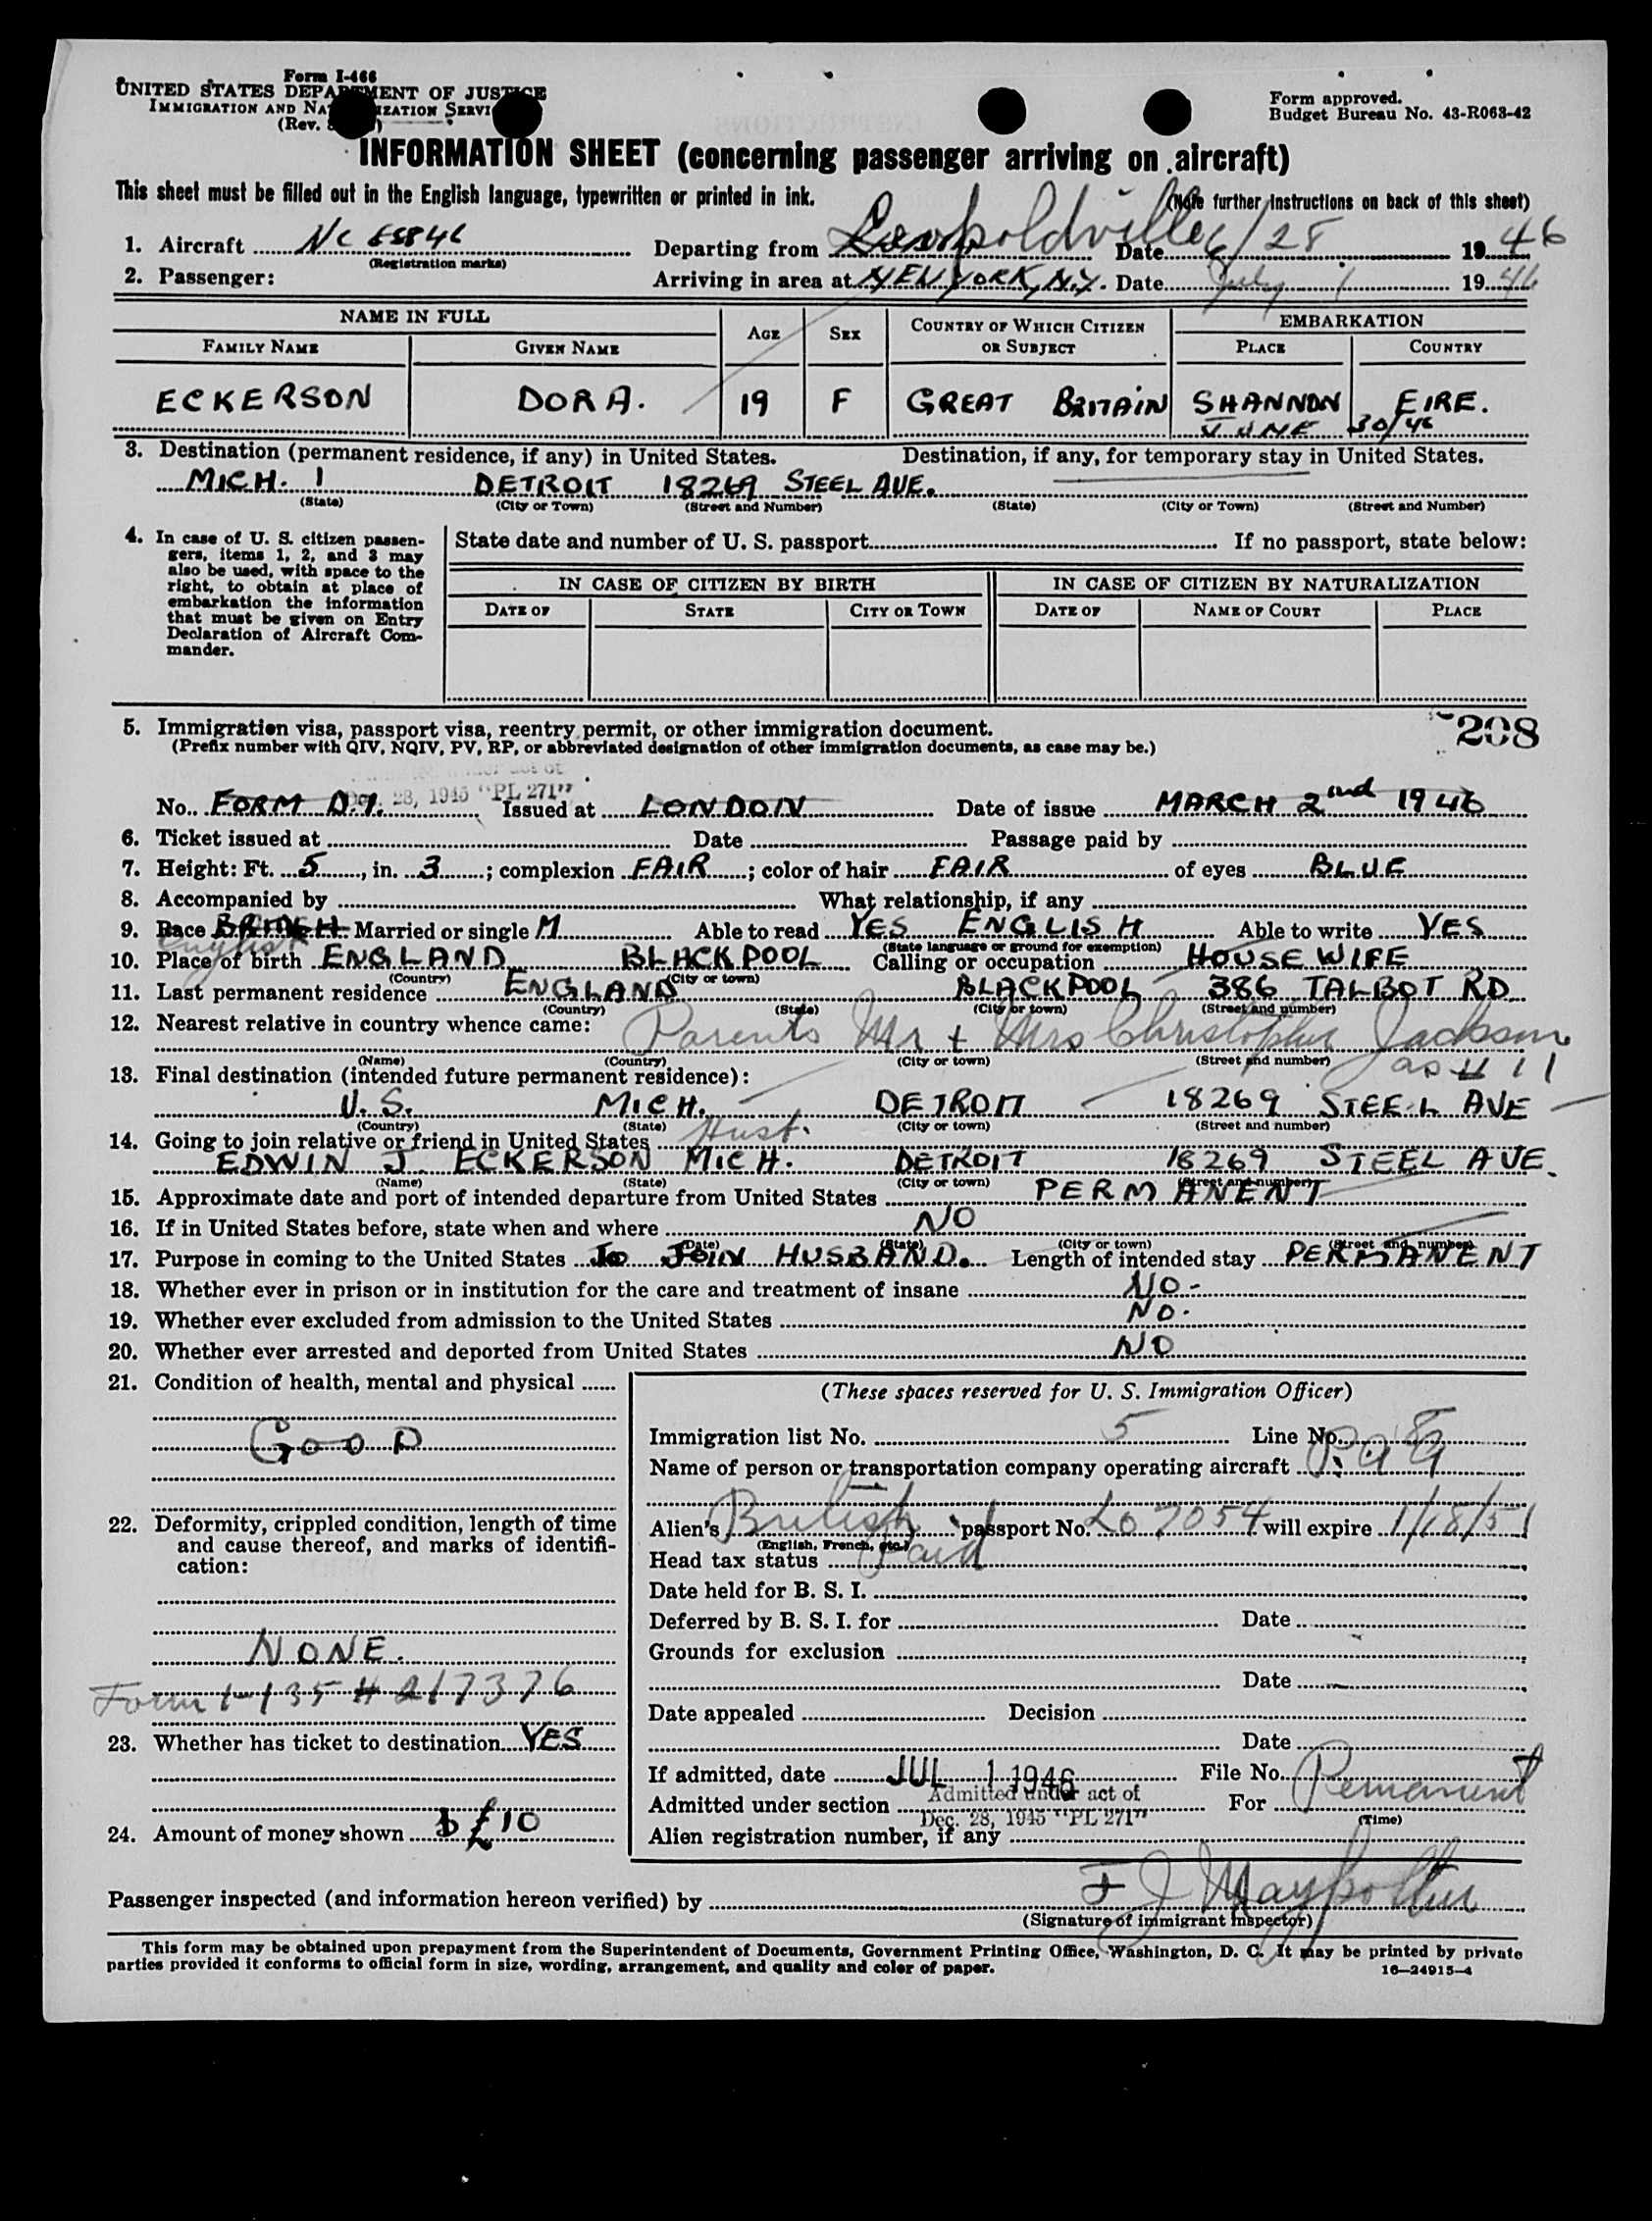 Form I-466
UNITED STATES DEPARTMENT OF JUSTICE
IMMIGRATION AND NATURALIZATION SERVICE
(Rev.
Form approved.
Budget Bureau No. 43-R063-42
INFORMATION SHEET (concerning passenger arriving on aircraft)
This sheet must be filled out in the English language, typewritten or printed in ink. (Note further instructions on back of this sheet)
1. Aircraft NC 88846 Departing from Leopoldville Date 6/28 1946
(Registration marks)
2. Passenger: Arriving in area at NEW YORK, N.Y. Date July 1 1946
NAME IN FULL AGE SEX COUNTRY OF WHICH CITIZEN OR SUBJECT EMBARKATION
FAMILY NAME GIVEN NAME PLACE COUNTRY
ECKERSON DORA. 19 F GREAT BRITAIN SHANNON EIRE.
JUNE 30/46
3. Destination (permanent residence, if any) in United States. Destination, if any, for temporary stay in United States.
MICH. 1 DETROIT 18269 STEEL AVE.
(State) (City or Town) (Street and Number) (State) (City or Town) (Street and Number)
4. In case of U. S. citizen passengers, items 1, 2, and 3 may also be used, with space to the right, to obtain at place of embarkation the information that must be given on Entry Declaration of Aircraft Commander.
State date and number of U. S. passport If no passport, state below:
IN CASE OF CITIZEN BY BIRTH IN CASE OF CITIZEN BY NATURALIZATION
DATE OF STATE CITY OR TOWN DATE OF NAME OF COURT PLACE
5. Immigration visa, passport visa, reentry permit, or other immigration document.
(Prefix number with QIV, NQIV, PV, RP, or abbreviated designation of other immigration documents, as case may be.)
208
Dec. 28, 1945 "PL 271"
No. FORM D.1. Issued at LONDON Date of issue MARCH 2nd 1946
6. Ticket issued at Date Passage paid by
7. Height: Ft. 5, in. 3; complexion FAIR; color of hair FAIR of eyes BLUE
8. Accompanied by What relationship, if any
9. Race BRITISH Married or single M Able to read YES ENGLISH Able to write YES
English (State language or ground for exemption)
10. Place of birth ENGLAND BLACKPOOL Calling or occupation HOUSEWIFE
(Country) (City or town)
11. Last permanent residence ENGLAND BLACKPOOL 386 TALBOT RD
(Country) (State) (City or town) (Street and number)
12. Nearest relative in country whence came: Parents Mr + Mrs Christopher Jackson
(Name) (Country) (City or town) (Street and number) as # 11
13. Final destination (intended future permanent residence):
U.S. MICH. DETROIT 18269 STEEL AVE
(Country) (State) (City or town) (Street and number)
14. Going to join relative or friend in United States Husb.
EDWIN J. ECKERSON MICH. DETROIT 18269 STEEL AVE.
(Name) (State) (City or town) (Street and number)
15. Approximate date and port of intended departure from United States PERMANENT
16. If in United States before, state when and where NO
(Date) (State) (City or town) (Street and number)
17. Purpose in coming to the United States TO JOIN HUSBAND. Length of intended stay PERMANENT
18. Whether ever in prison or in institution for the care and treatment of insane NO-
19. Whether ever excluded from admission to the United States NO.
20. Whether ever arrested and deported from United States NO
21. Condition of health, mental and physical
GOOD
22. Deformity, crippled condition, length of time and cause thereof, and marks of identification:
NONE.
Form I-135 # 217376
23. Whether has ticket to destination YES
24. Amount of money shown £10
(These spaces reserved for U. S. Immigration Officer)
Immigration list No. 5 Line No. 8
Name of person or transportation company operating aircraft
Alien's British passport No. Lo 7054 will expire 1/18/51
(English, French, etc.)
Head tax status Paid
Date held for B. S. I.
Deferred by B. S. I. for Date
Grounds for exclusion
Date
Date appealed Decision
Date
If admitted, date JUL 1 1946 File No.
Admitted under section Admitted under act of For Permanent
Dec. 28, 1945 "PL 271" (Time)
Alien registration number, if any
Passenger inspected (and information hereon verified) by
(Signature of immigrant inspector)
This form may be obtained upon prepayment from the Superintendent of Documents, Government Printing Office, Washington, D. C. It may be printed by private
parties provided it conforms to official form in size, wording, arrangement, and quality and color of paper.
16—24915-4